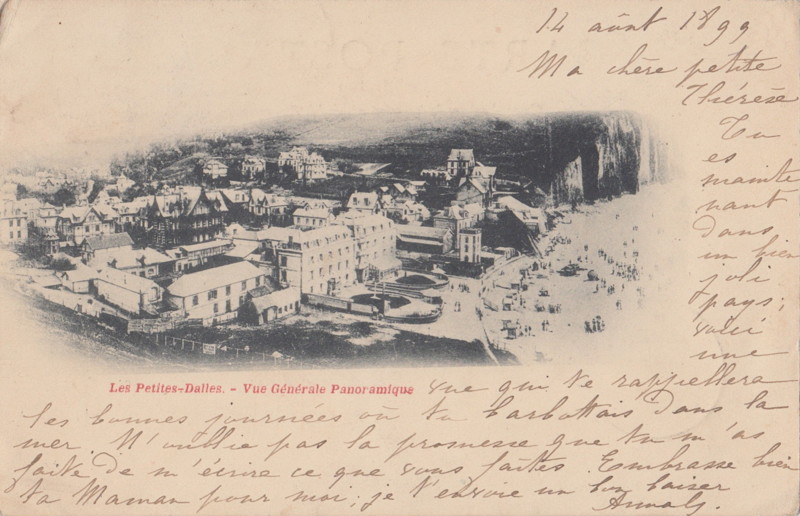 14 août 1899
Ma chère petite
Thérèse
Tu
es
mainte
nant
dans
un bien
joli
pays;
voici
une
Les Petites-Dalles. - Vue Générale Panoramique
vue qui te rappellera
les bonnes journées où tu barbottais dans la
mer. N'oublie pas la promesse que tu m'as
faite de m'écrire ce que vous faites. Embrasse bien
ta Maman pour moi; je t'envoie un bon baiser